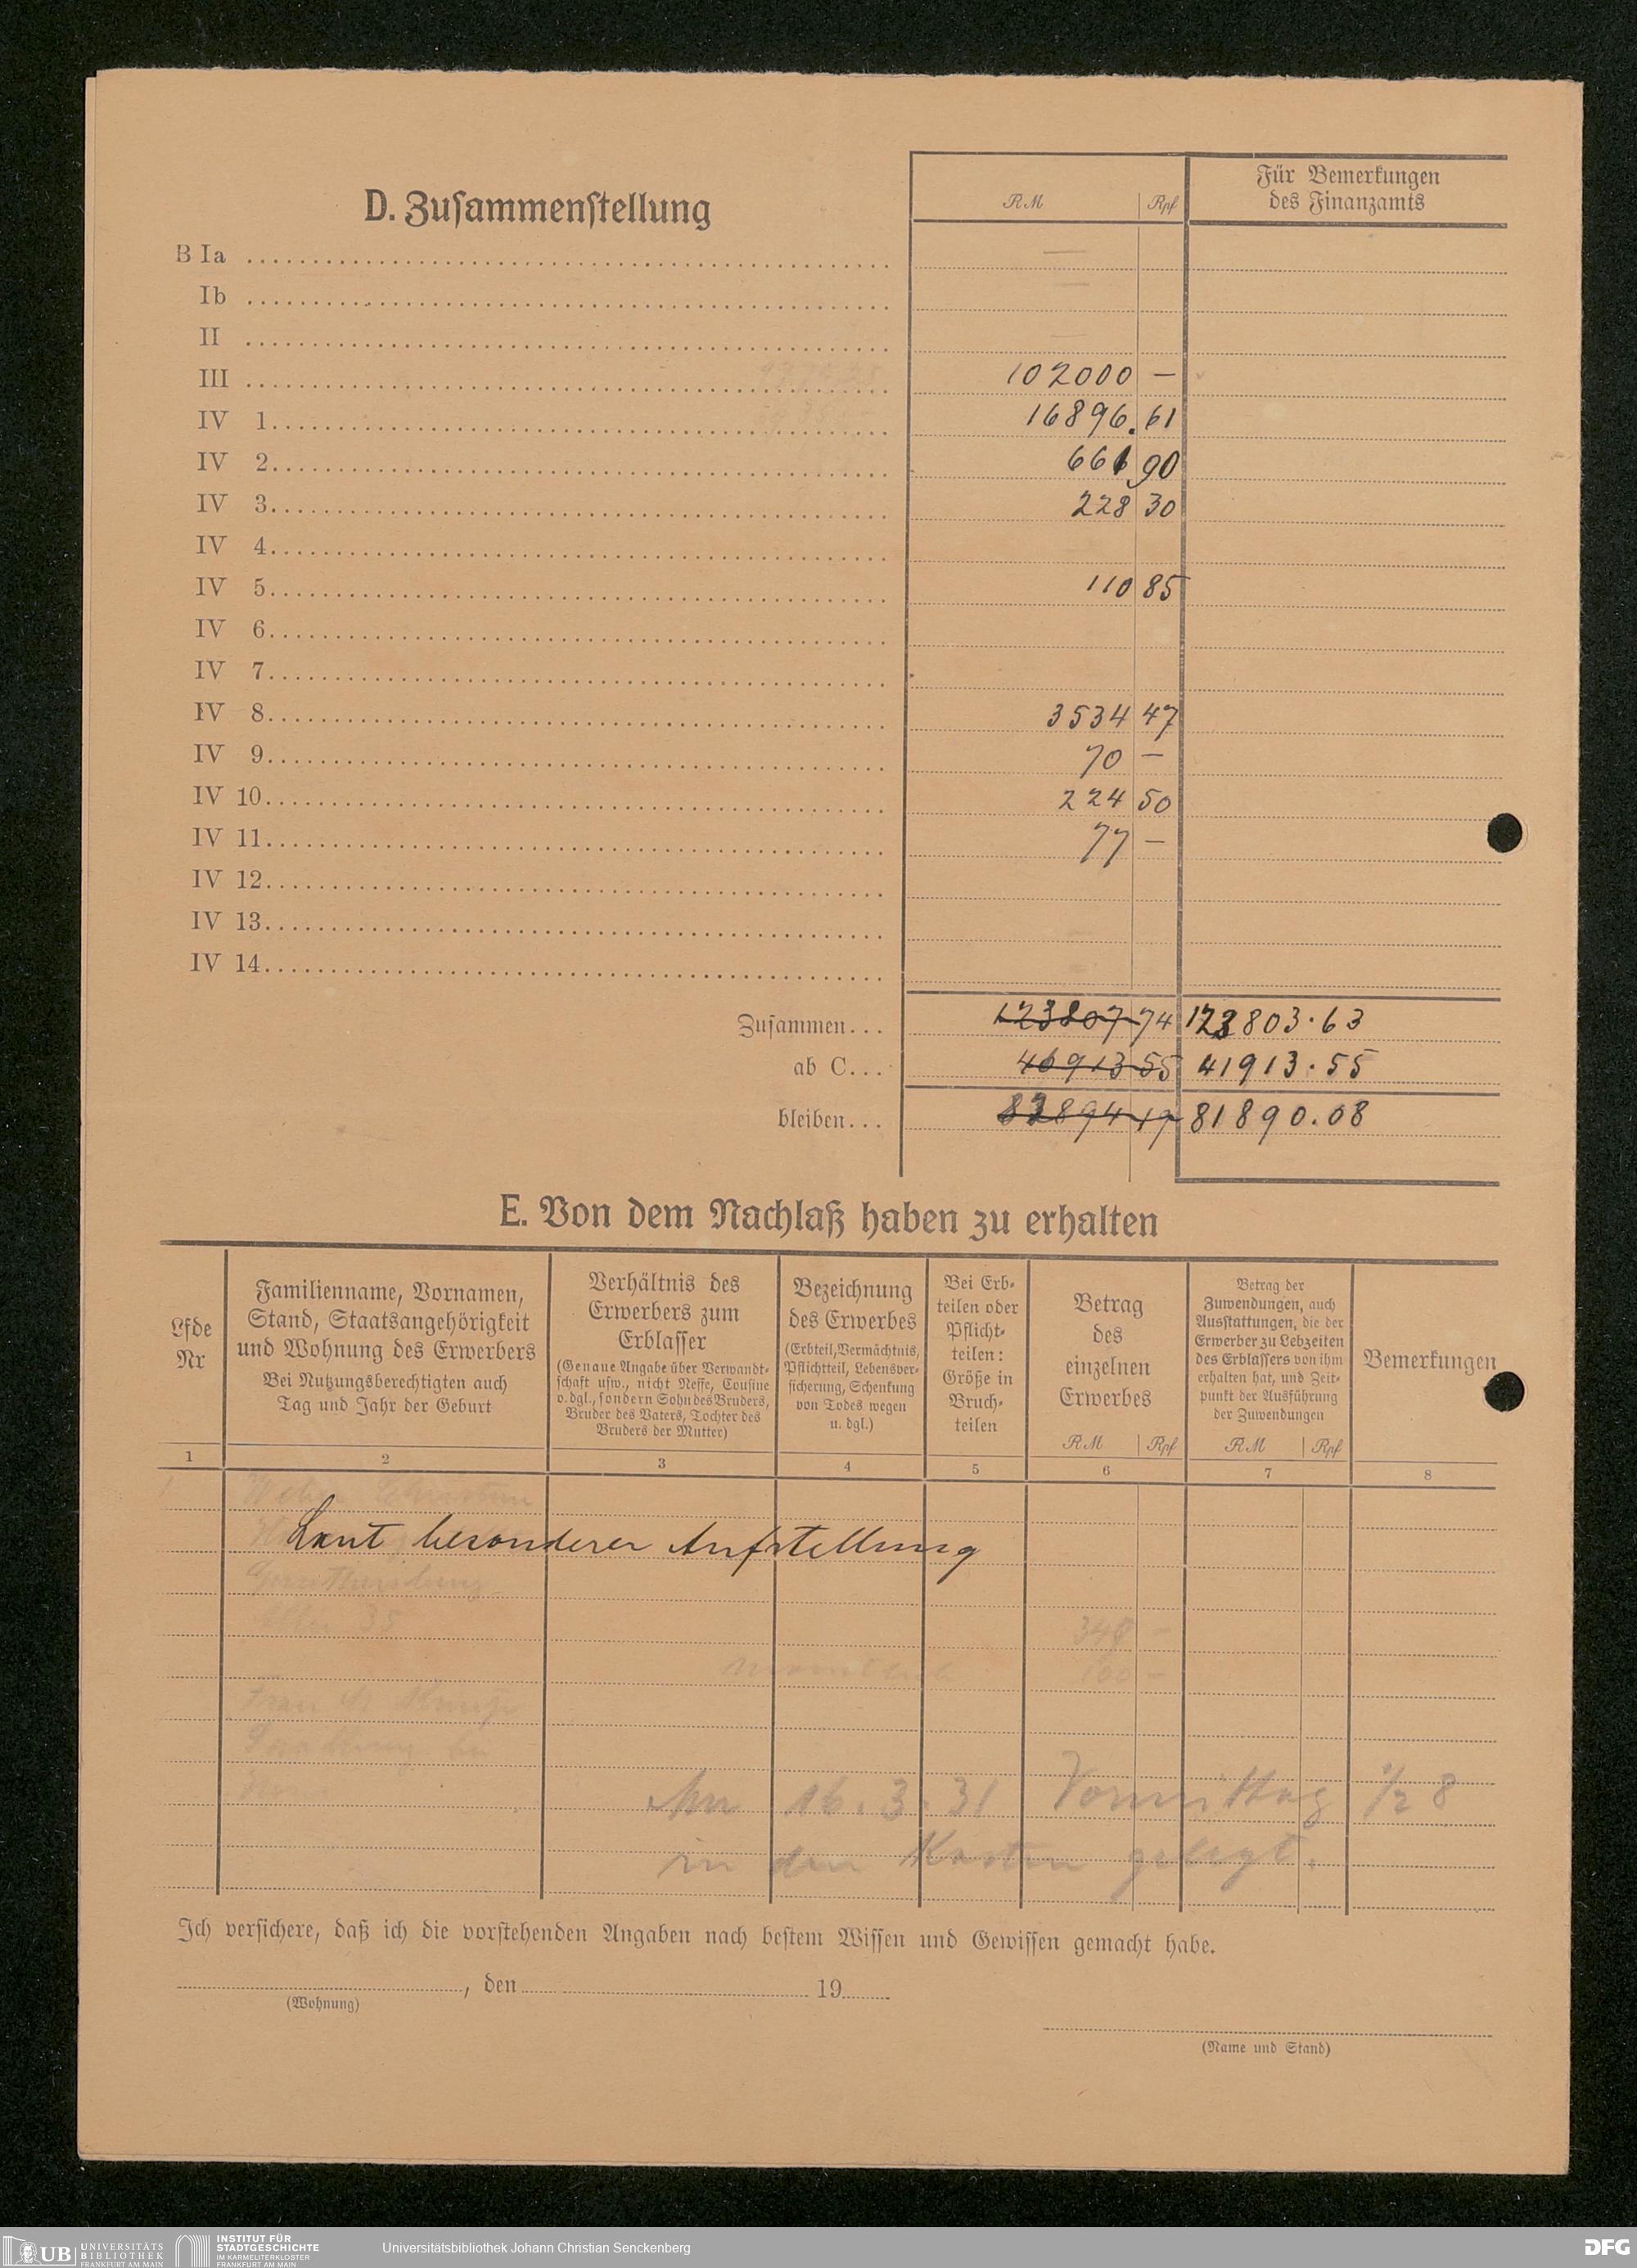 D. Zusammenstellung
RM Rpf
Für Bemerkungen
des Finanzamts
B Ia —
Ib —
II —
III 102000 —
IV 1 16896.61
IV 2 661 90
IV 3 228 30
IV 4
IV 5 110 85
IV 6
IV 7
IV 8 3534 47
IV 9 70 —
IV 10 224 50
IV 11 77 —
IV 12
IV 13
IV 14
Zusammen... 123807 74 123803.63
ab C... 40913 55 41913.55
bleiben... 82894 19 81890.08
E. Von dem Nachlaß haben zu erhalten
Lfde
Nr
Familienname, Vornamen,
Stand, Staatsangehörigkeit
und Wohnung des Erwerbers
Bei Nutzungsberechtigten auch
Tag und Jahr der Geburt
Verhältnis des
Erwerbers zum
Erblasser
(Genaue Angabe über Verwandt-
schaft usw., nicht Neffe, Cousine
o. dgl., sondern Sohn des Bruders,
Bruder des Vaters, Tochter des
Bruders der Mutter)
Bezeichnung
des Erwerbes
(Erbteil, Vermächtnis,
Pflichtteil, Lebensver-
sicherung, Schenkung
von Todes wegen
u. dgl.)
Bei Erb-
teilen oder
Pflicht-
teilen:
Größe in
Bruch-
teilen
Betrag
des
einzelnen
Erwerbes
RM Rpf
Betrag der
Zuwendungen, auch
Ausstattungen, die der
Erwerber zu Lebzeiten
des Erblassers von ihm
erhalten hat, und Zeit-
punkt der Ausführung
der Zuwendungen
RM Rpf
Bemerkungen
1 2 3 4 5 6 7 8
Laut besonderer Aufstellung
348 —
monatlich 100 —
Am 16.3.31 Vormittag ½ 8
in den Kasten gelegt.
Ich versichere, daß ich die vorstehenden Angaben nach bestem Wissen und Gewissen gemacht habe.
, den 19
(Wohnung)
(Name und Stand)
UB UNIVERSITÄTS
BIBLIOTHEK
FRANKFURT AM MAIN
INSTITUT FÜR
STADTGESCHICHTE
IM KARMELITERKLOSTER
FRANKFURT AM MAIN
Universitätsbibliothek Johann Christian Senckenberg
DFG